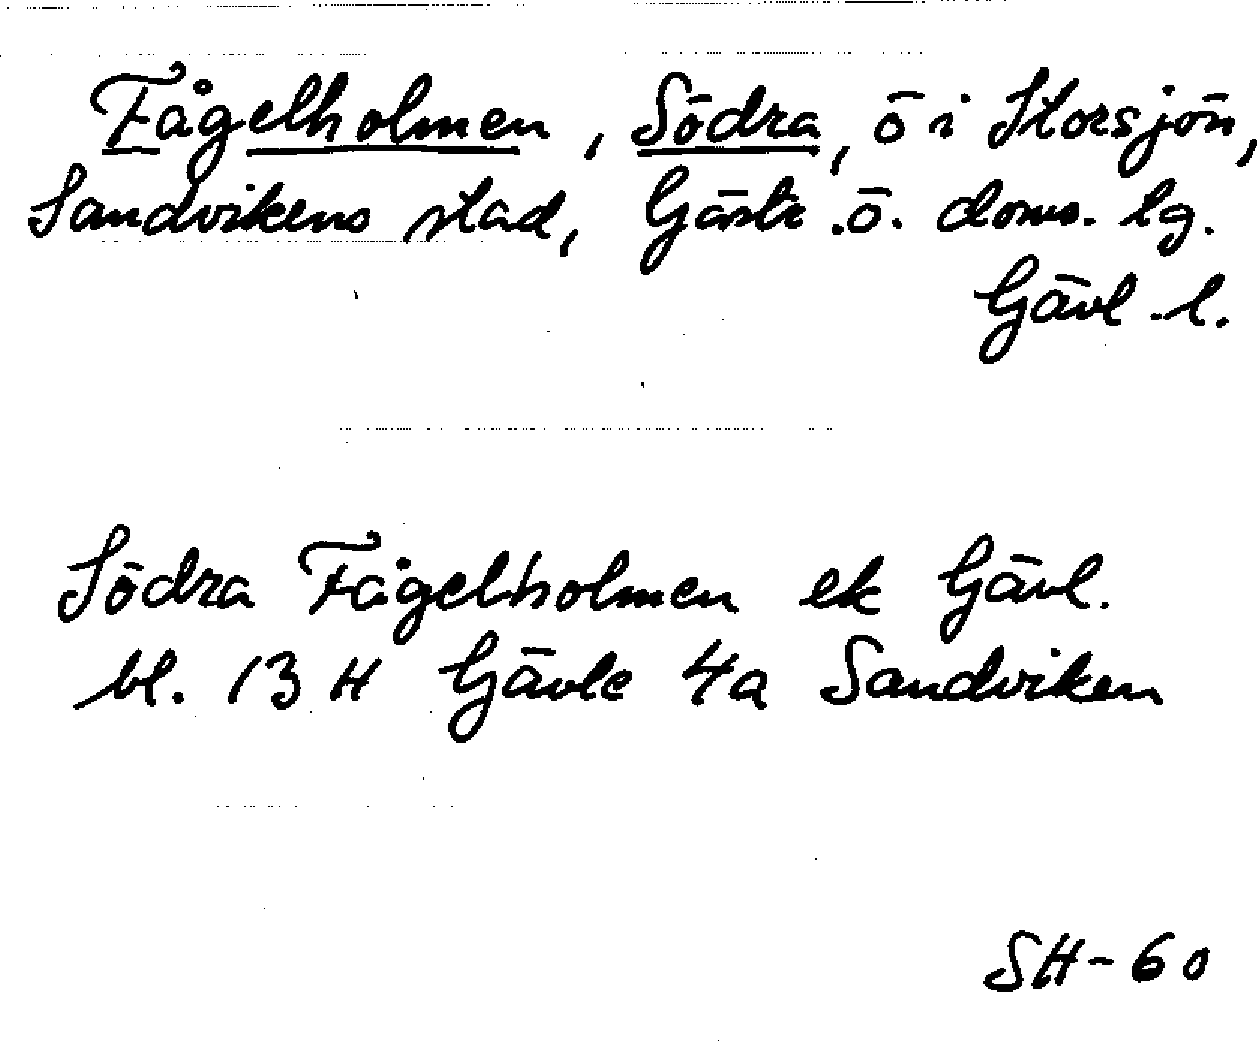 Fågelholmen, Södra, ö i Storsjön,
Sandvikens stad, Gästr. ö. doms. lg.
Gävl. l.
Södra Fågelholmen ek Gävl.
bl. 13 H Gävle 4a Sandviken
SH-60